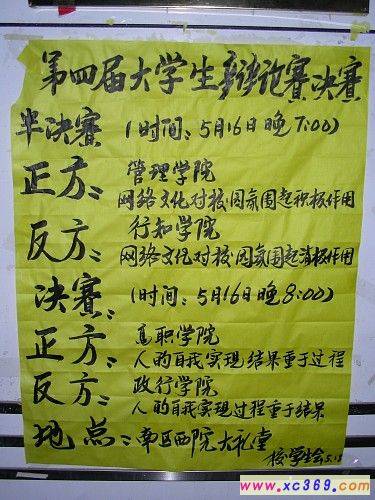 第四届大学生辩论赛决赛
半决赛 (时间:5月16日晚7:00)
正方: 管理学院
网络文化对校园氛围起积极作用
反方: 行知学院
网络文化对校园氛围起消极作用
决赛: (时间:5月16日晚8:00)
正方: 高职学院
人的自我实现结果重于过程
反方: 政行学院
人的自我实现过程重于结果
地点: 南区西院大礼堂
校学生会5.13
www.xc369.com